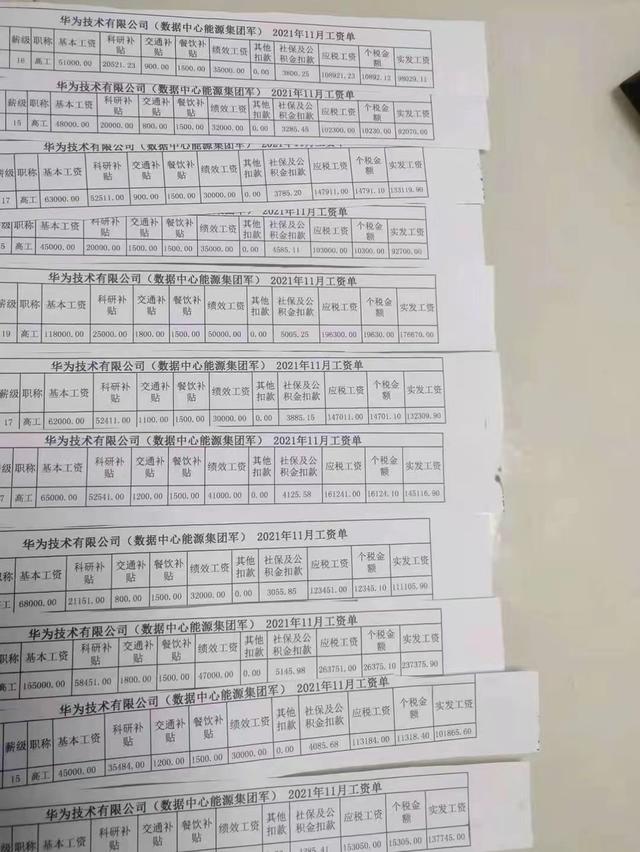 华为技术有限公司（数据中心能源集团军） 2021年11月工资单
薪级 职称 基本工资 科研补贴 交通补贴 餐饮补贴 绩效工资 其他扣款 社保及公积金扣款 应税工资 个税金额 实发工资
16 高工 51000.00 20521.23 900.00 1500.00 35000.00 0.00 3800.25 108921.23 10892.12 98029.11
华为技术有限公司（数据中心能源集团军） 2021年11月工资单
薪级 职称 基本工资 科研补贴 交通补贴 餐饮补贴 绩效工资 其他扣款 社保及公积金扣款 应税工资 个税金额 实发工资
15 高工 48000.00 20000.00 800.00 1500.00 32000.00 0.00 3285.45 102300.00 10230.00 92070.00
华为技术有限公司（数据中心能源集团军） 2021年11月工资单
薪级 职称 基本工资 科研补贴 交通补贴 餐饮补贴 绩效工资 其他扣款 社保及公积金扣款 应税工资 个税金额 实发工资
17 高工 63000.00 52511.00 900.00 1500.00 30000.00 0.00 3785.20 147911.00 14791.10 133119.90
2021年11月工资单
薪级 职称 基本工资 科研补贴 交通补贴 餐饮补贴 绩效工资 其他扣款 社保及公积金扣款 应税工资 个税金额 实发工资
5 高工 45000.00 20090.00 1500.00 1500.00 35000.00 0.00 4585.11 103000.00 10300.00 92700.00
华为技术有限公司（数据中心能源集团军） 2021年11月工资单
薪级 职称 基本工资 科研补贴 交通补贴 餐饮补贴 绩效工资 其他扣款 社保及公积金扣款 应税工资 个税金额 实发工资
19 高工 118000.00 25000.00 1800.00 1500.00 50000.00 0.00 5005.25 196300.00 19630.00 176670.00
华为技术有限公司（数据中心能源集团军） 2021年11月工资单
薪级 职称 基本工资 科研补贴 交通补贴 餐饮补贴 绩效工资 其他扣款 社保及公积金扣款 应税工资 个税金额 实发工资
17 高工 62000.00 52411.00 1100.00 1500.00 30000.00 0.00 3885.15 147011.00 14701.10 132309.90
华为技术有限公司（数据中心能源集团军） 2021年11月工资单
薪级 职称 基本工资 科研补贴 交通补贴 餐饮补贴 绩效工资 其他扣款 社保及公积金扣款 应税工资 个税金额 实发工资
7 高工 65000.00 52541.00 1200.00 1500.00 41000.00 0.00 4125.58 161241.00 16124.10 145116.90
华为技术有限公司（数据中心能源集团军） 2021年11月工资单
职称 基本工资 科研补贴 交通补贴 餐饮补贴 绩效工资 其他扣款 社保及公积金扣款 应税工资 个税金额 实发工资
高工 68000.00 21151.00 800.00 1500.00 32000.00 0.00 3055.85 123451.00 12345.10 111105.90
华为技术有限公司（数据中心能源集团军） 2021年11月工资单
职称 基本工资 科研补贴 交通补贴 餐饮补贴 绩效工资 其他扣款 社保及公积金扣款 应税工资 个税金额 实发工资
高工 155000.00 58451.00 1800.00 1500.00 47000.00 0.00 5145.98 263751.00 26375.10 237375.90
华为技术有限公司（数据中心能源集团军） 2021年11月工资单
薪级 职称 基本工资 科研补贴 交通补贴 餐饮补贴 绩效工资 其他扣款 社保及公积金扣款 应税工资 个税金额 实发工资
15 高工 45000.00 35484.00 1200.00 1500.00 30000.00 0.00 4085.68 113184.00 11318.40 101865.60
华为技术有限公司（数据中心能源集团军） 2021年11月工资单
薪级 职称 基本工资 科研补贴 交通补贴 餐饮补贴 绩效工资 其他扣款 社保及公积金扣款 应税工资 个税金额 实发工资
153050.00 15305.00 137745.00